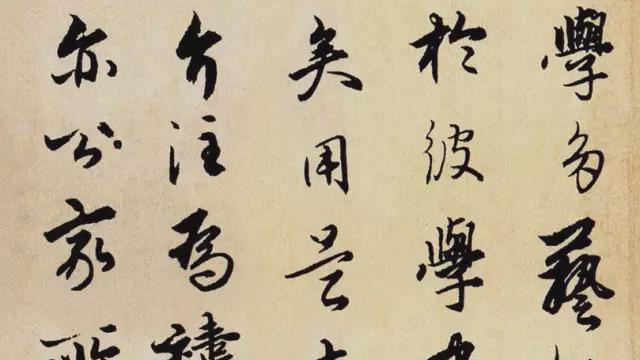 學多藝
於彼學
矣用是
注為
亦公家所